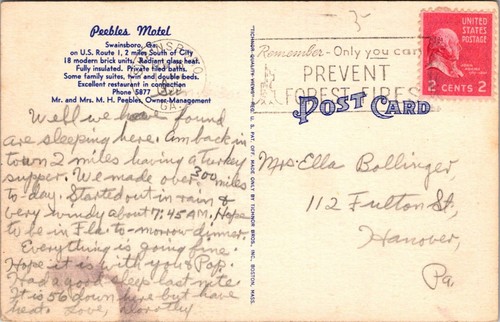 Peebles Motel
Swainsboro, Ga.
on U.S. Route 1, 2 miles South of City
18 modern brick units. Radiant glass heat.
Fully insulated. Private tiled baths.
Some family suites, twin and double beds.
Excellent restaurant in connection
Phone 5877
Mr. and Mrs. M. H. Peebles, Owner-Management
Well we have found
are sleeping here. Am back in
town 2 miles having a turkey
supper. We made over 300 miles
to-day. Started out in rain &
very windy about 7:45 A.M. Hope
to be in Fla. to-morrow dinner.
Everything is going fine.
Hope it is with you & Pop.
Had a good sleep last nite.
It is 56 down here but have
heat. Love, Dorothy
TICHNOR QUALITY VIEWS, REG. U. S. PAT. OFF. MADE ONLY BY TICHNOR BROS., INC., BOSTON, MASS.
SWAINSBORO
GA.
Remember - Only you can
PREVENT
FOREST FIRES
UNITED
STATES
POSTAGE
2 CENTS 2
POST CARD
Mrs. Ella Bollinger,
112 Fulton St,
Hanover,
Pa.